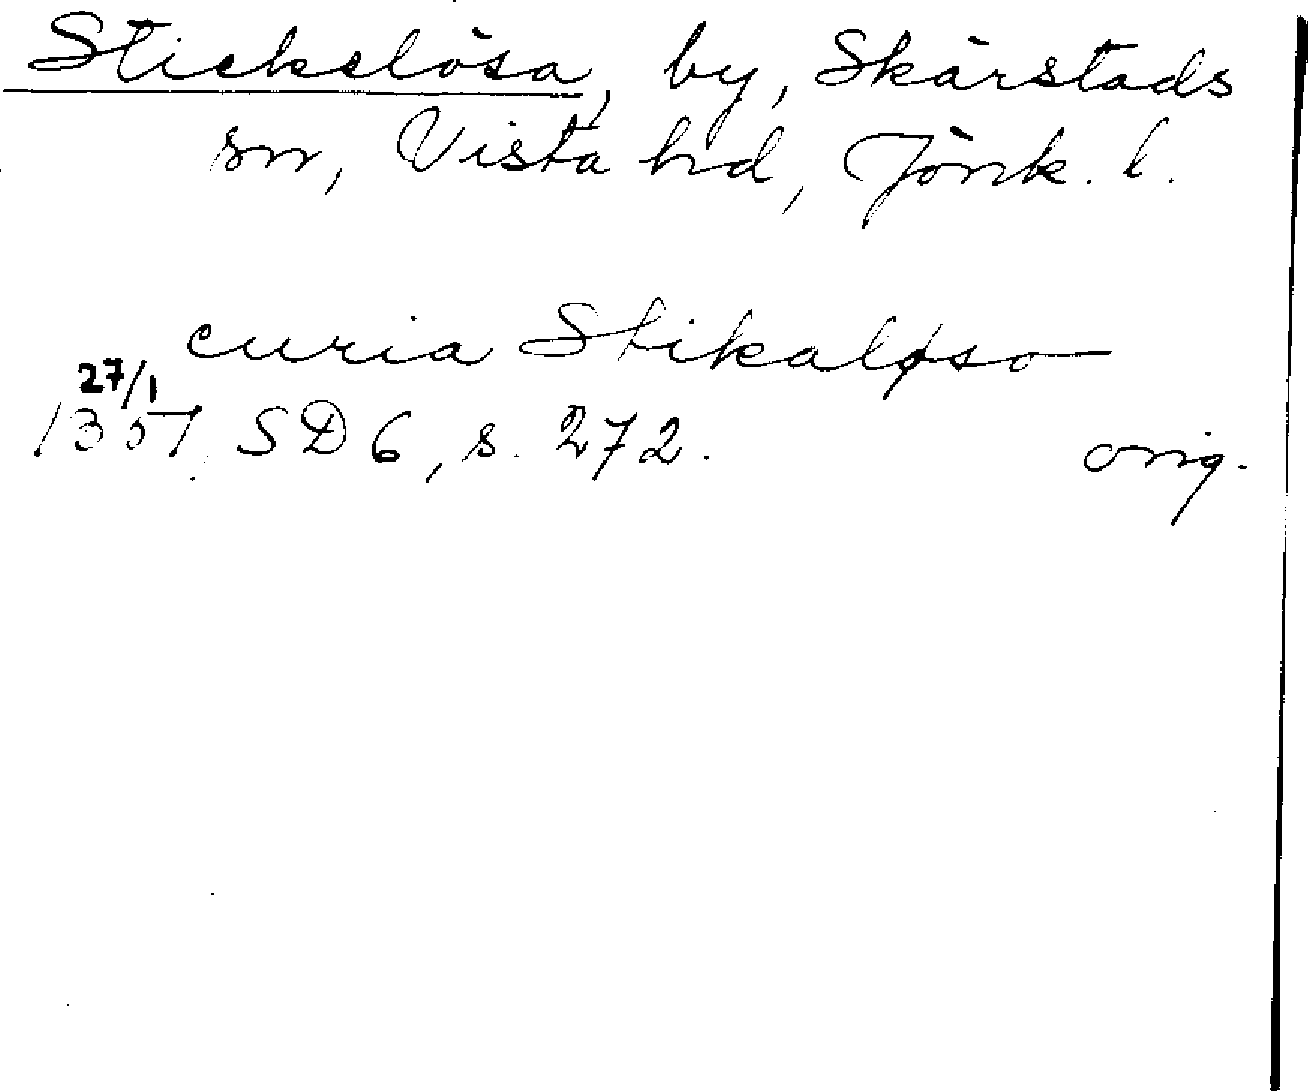 Stickelösa, by, Skärstads
sn, Vista hd, Jönk. l.
curia Stikaløso
27/1
1351. SD 6, s. 272. orig.